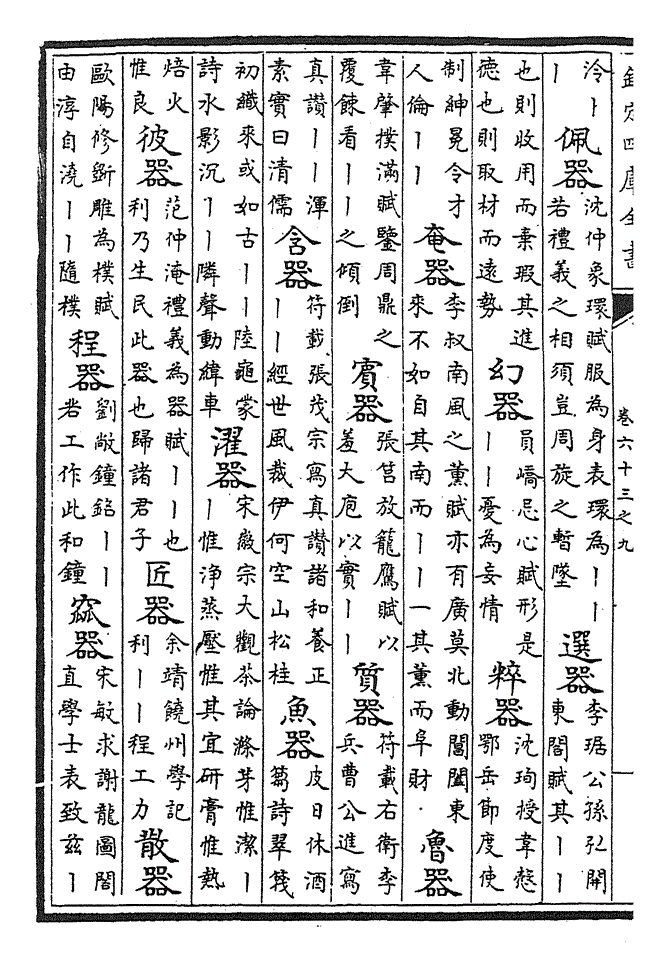 欽定四庫全書
卷六十三之九
泠丨
丨
佩器
沈仲象環賦服為身表環為丨丨
若禮義之相須豈周旋之暫墜
選器
李琚公孫弘開
東閤賦其丨丨
也則收用而棄瑕其進
德也則取材而遠勢
幻器
員嶠忌心賦形是
丨丨憂為妄情
粹器
沈珣授韋慤
鄂岳節度使
制紳冕令才
人倫丨丨
奄器
李叔南風之薰賦亦有廣莫北動閶闔東
來不如自其南而丨丨一其薰而阜財
魯器
韋肇撲滿賦鑒周鼎之
覆餗看丨丨之傾倒
賓器
張莒放籠鷹賦以
羞大庖以實丨丨
質器
符載右衛李
兵曹公進寫
真讚丨丨渾
素實曰清儒
含器
符載張茂宗寫真讚諸和養正
丨丨經世風裁伊何空山松桂
魚器
皮日休酒
篘詩翠篾
初織來或如古丨丨陸龜蒙
詩水影沉丨丨隣聲動緯車
濯器
宋徽宗大觀茶論滌芽惟潔丨
丨惟淨蒸壓惟其宜研膏惟熱
焙火
惟良
彼器
范仲淹禮義為器賦丨丨也
利乃生民此器也歸諸君子
匠器
余靖饒州學記
利丨丨程工力
散器
歐陽修斲雕為樸賦
由淳自澆丨丨隨樸
程器
劉敞鐘銘丨丨
若工作此和鐘
窳器
宋敏求謝龍圖閣
直學士表致兹丨